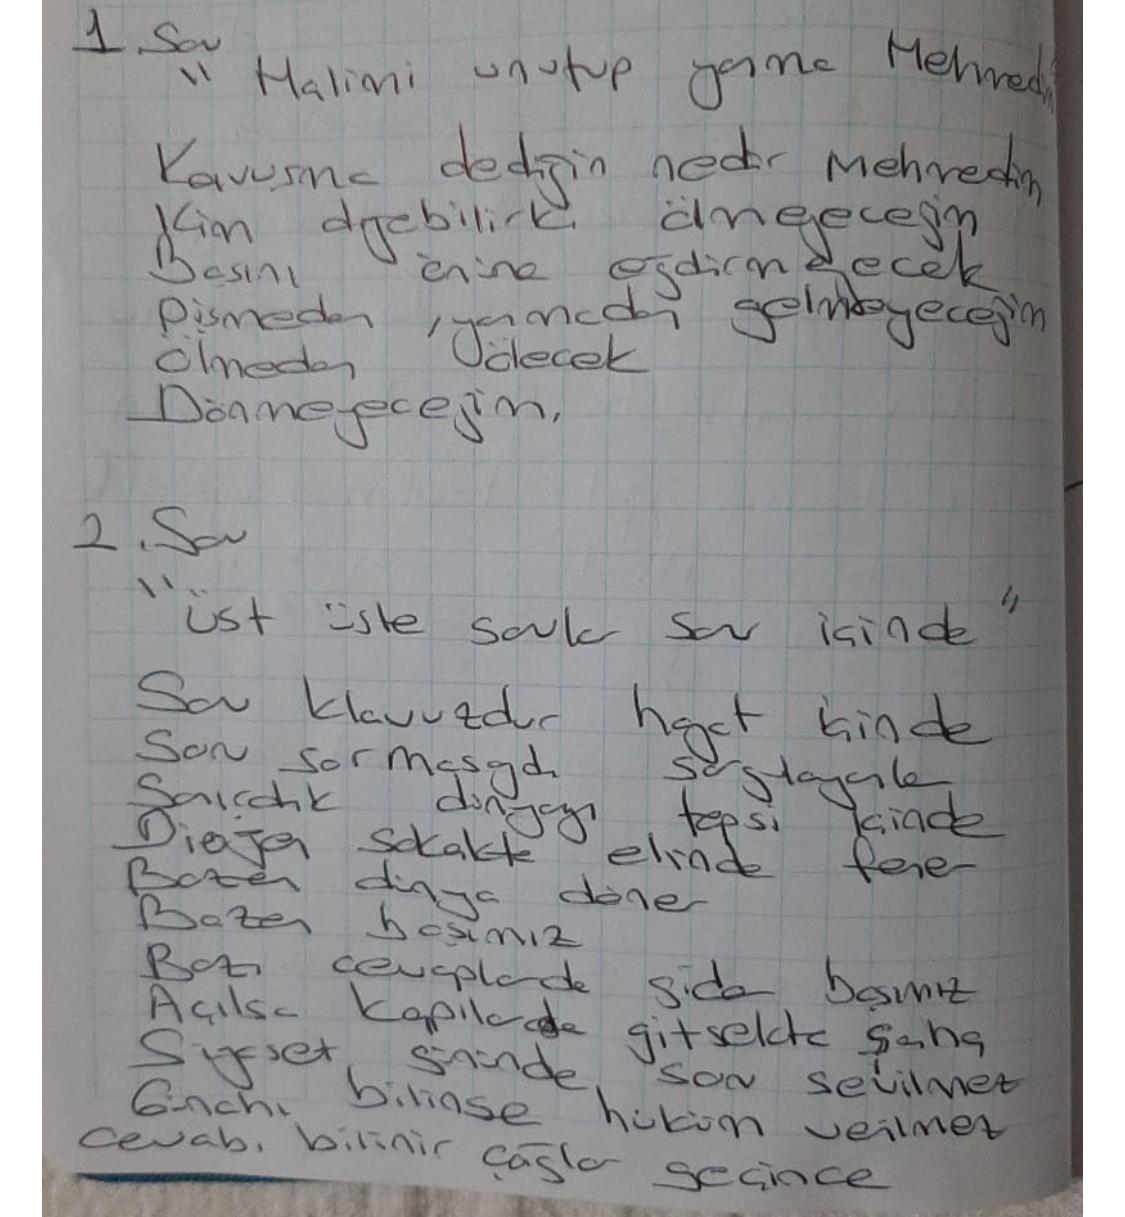 1. Soru
" Halimi unutup yanma Mehmedim
Kavuşma dediğin nedir Mehmedim
Kim diyebilirki ölmeyeceğim
Başını önine eğdirmeyecek
Pişmeden, yanmadan gelmeyeceğim
Ölmeden ölecek
Dönmeyeceğim.
2. Soru
"üst üste sorular soru içinde"
Soru klavuzdur hayat içinde
Soru sormasaydı
dünyayı tepsi içinde
Diojen sokakta elinde fener
Bazen dünya döner
Bazen başımız
Bazı cevaplarda gider başımız
Açılsa kapılarda gitsekte şaha
Siyaset gününde soru sevilmez
Günahı bilinse hüküm verilmez
cevabı bilinir çağlar geçince